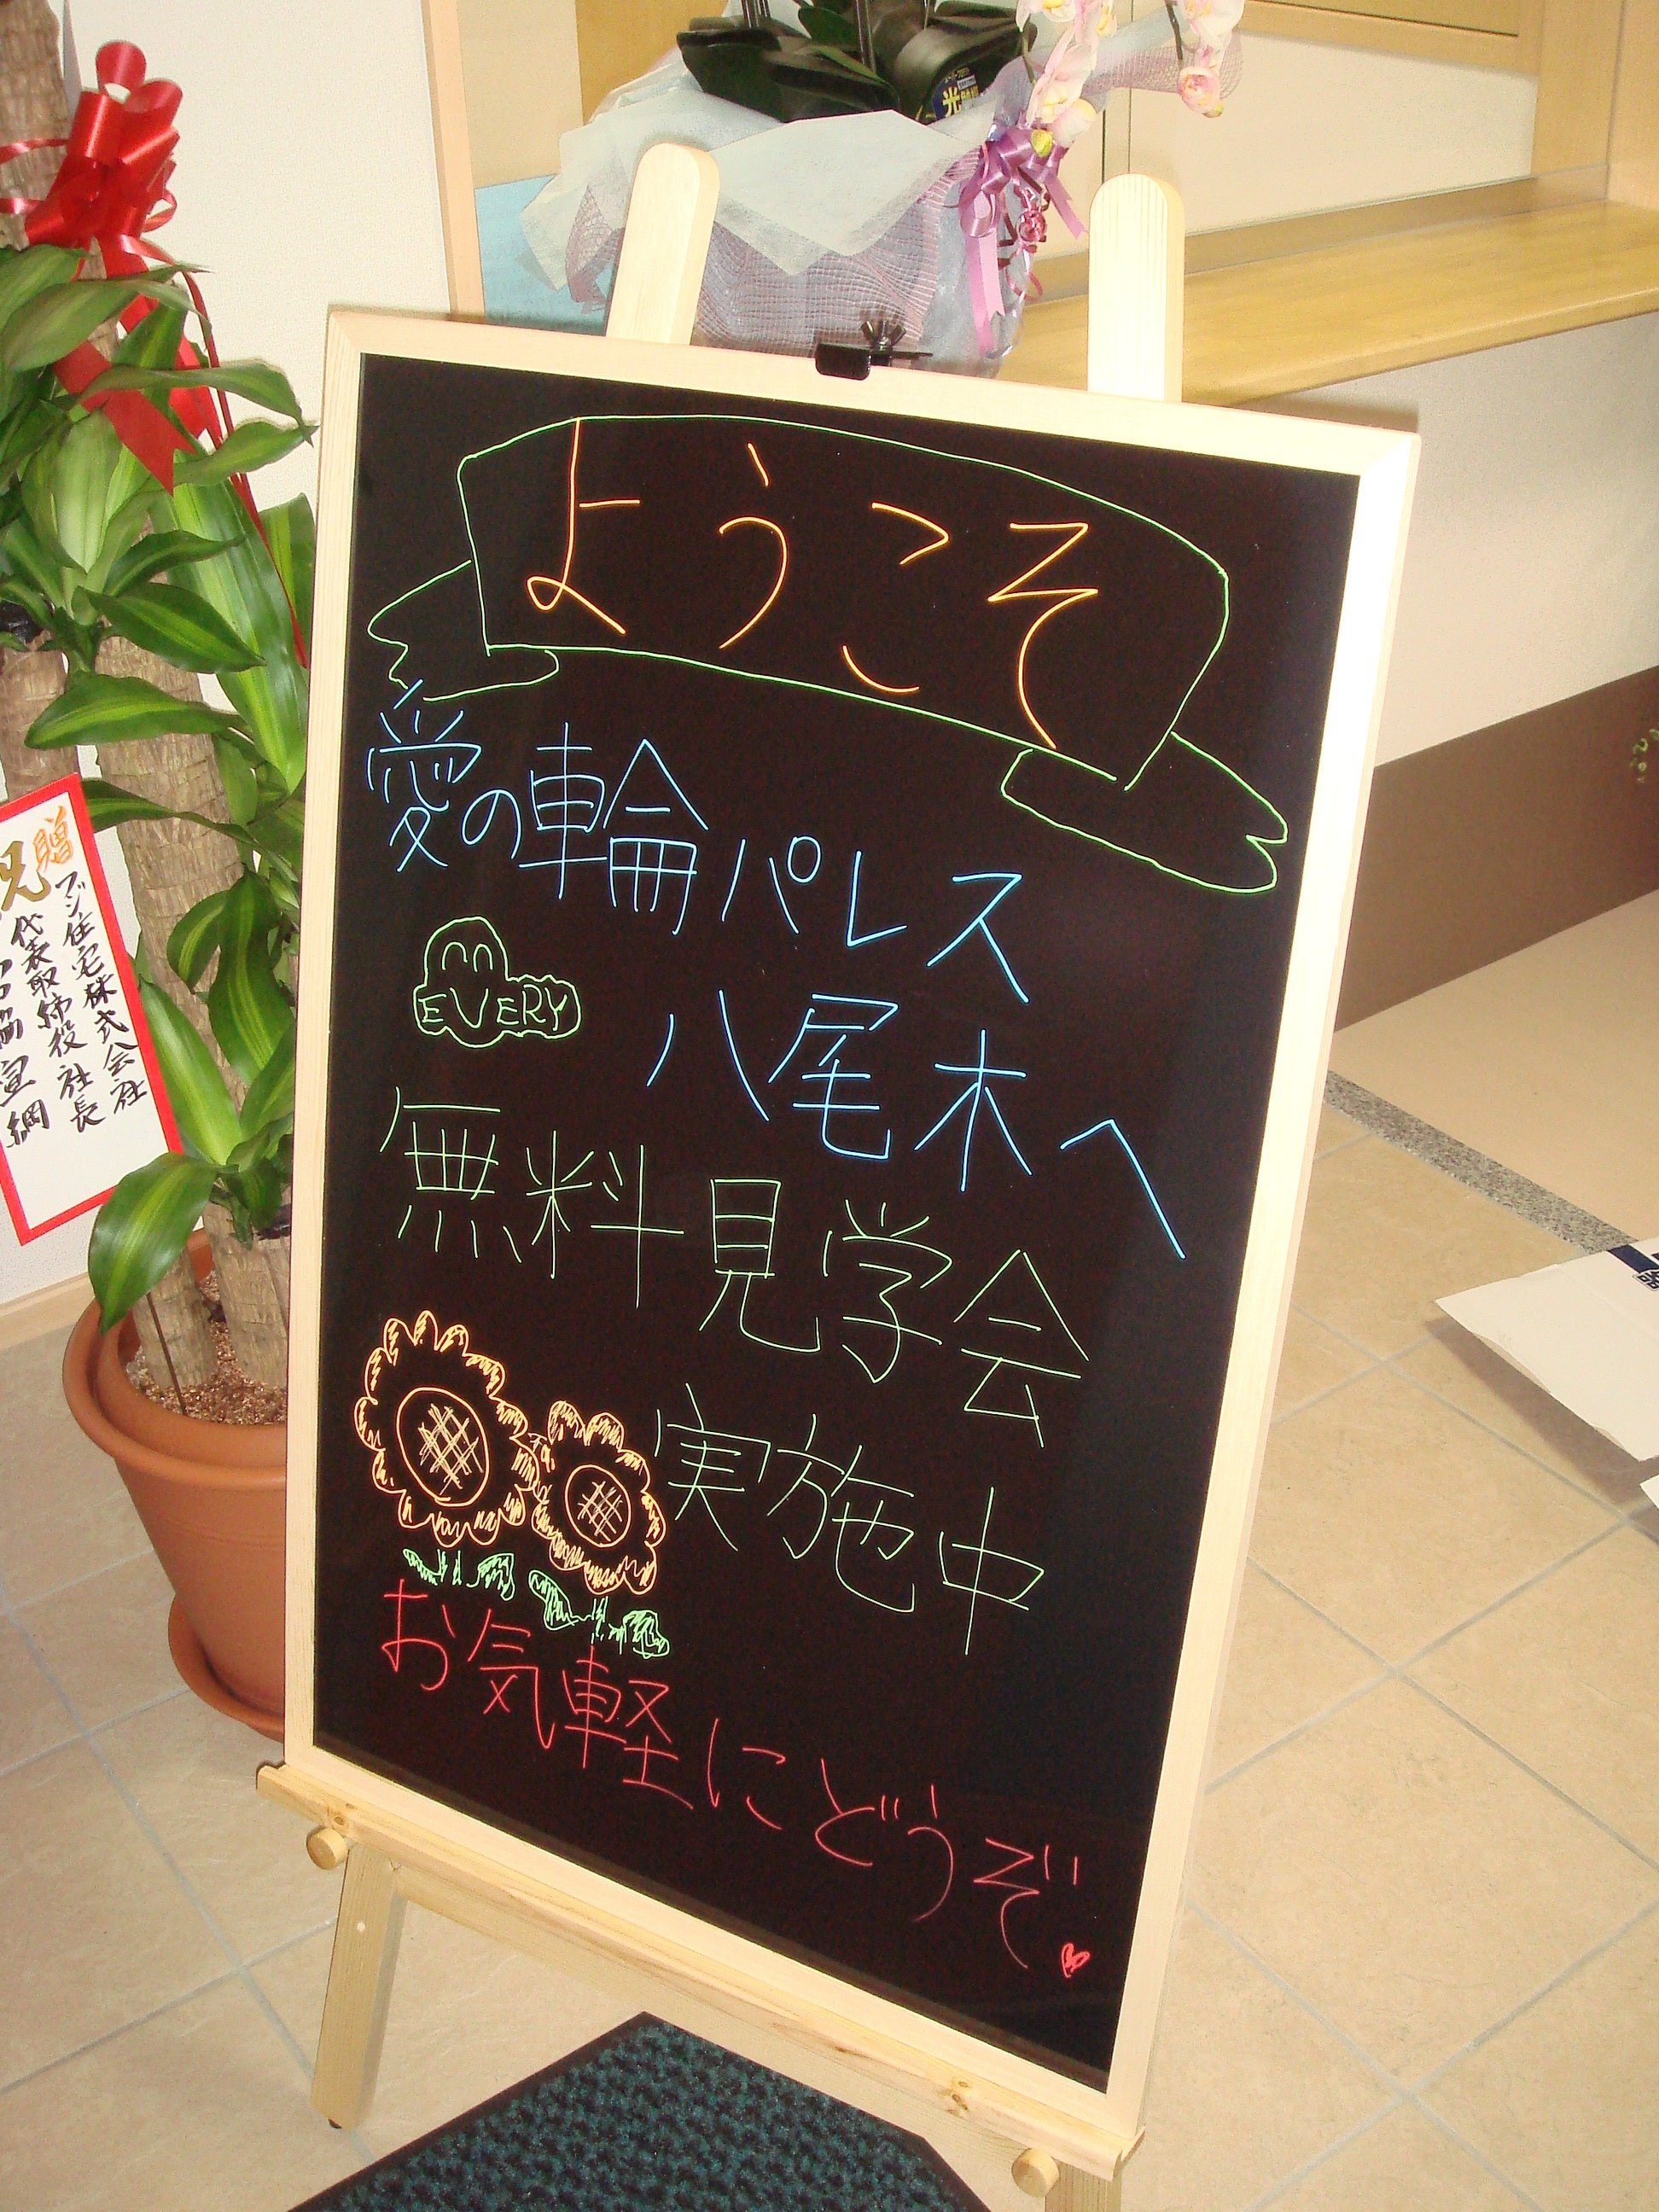 ようこそ
愛の輪パレス
EVERY
八尾木へ
無料見学会
実施中
お気軽にどうぞ
贈
フジ住宅株式会社
代表取締役社長
宣綱
光